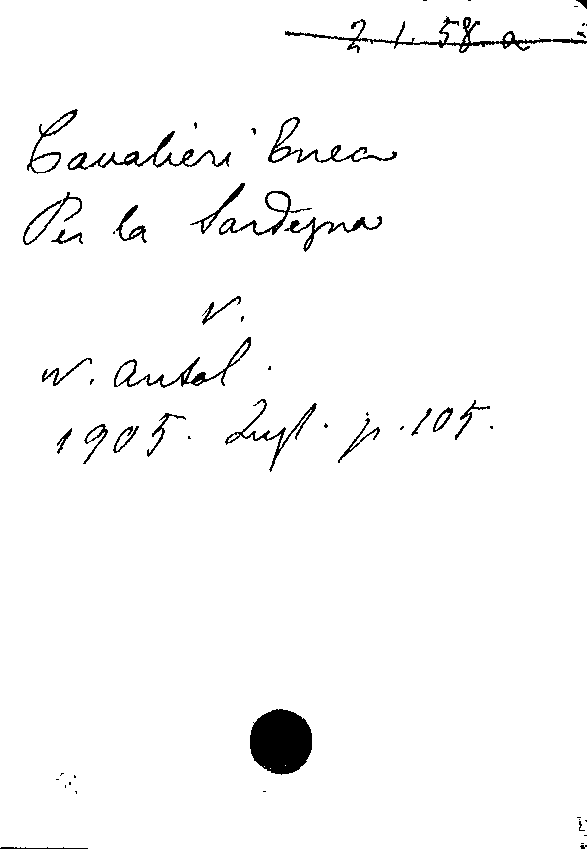 2. 1. 58 a
Cavalieri Enea
Per la Sardegna
v.
N. Antol.
1905. Lugl. p. 105.